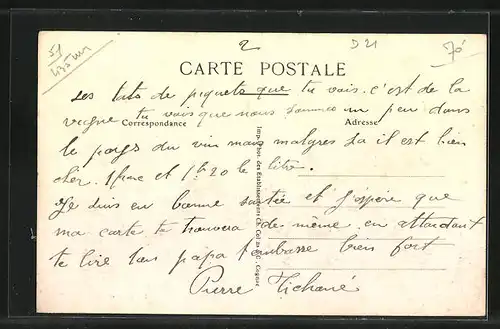 51
435 mm
2
D 21
70
CARTE POSTALE
Les tats de piquets que tu vois c'est de la
vigne tu vois que nous sommes un peu dans
Correspondance
Adresse
le pays du vin mais malgres sa il est bien
cher. 1 franc et 1 fr 20 le litre.
Je suis en bonne santée et j'espère que
ma carte te trouvera de même en attendant
te lire ton papa t'embrasse bien fort
Pierre
Imp. Phot. des Etablissements Ch. Collas & C°, Cognac